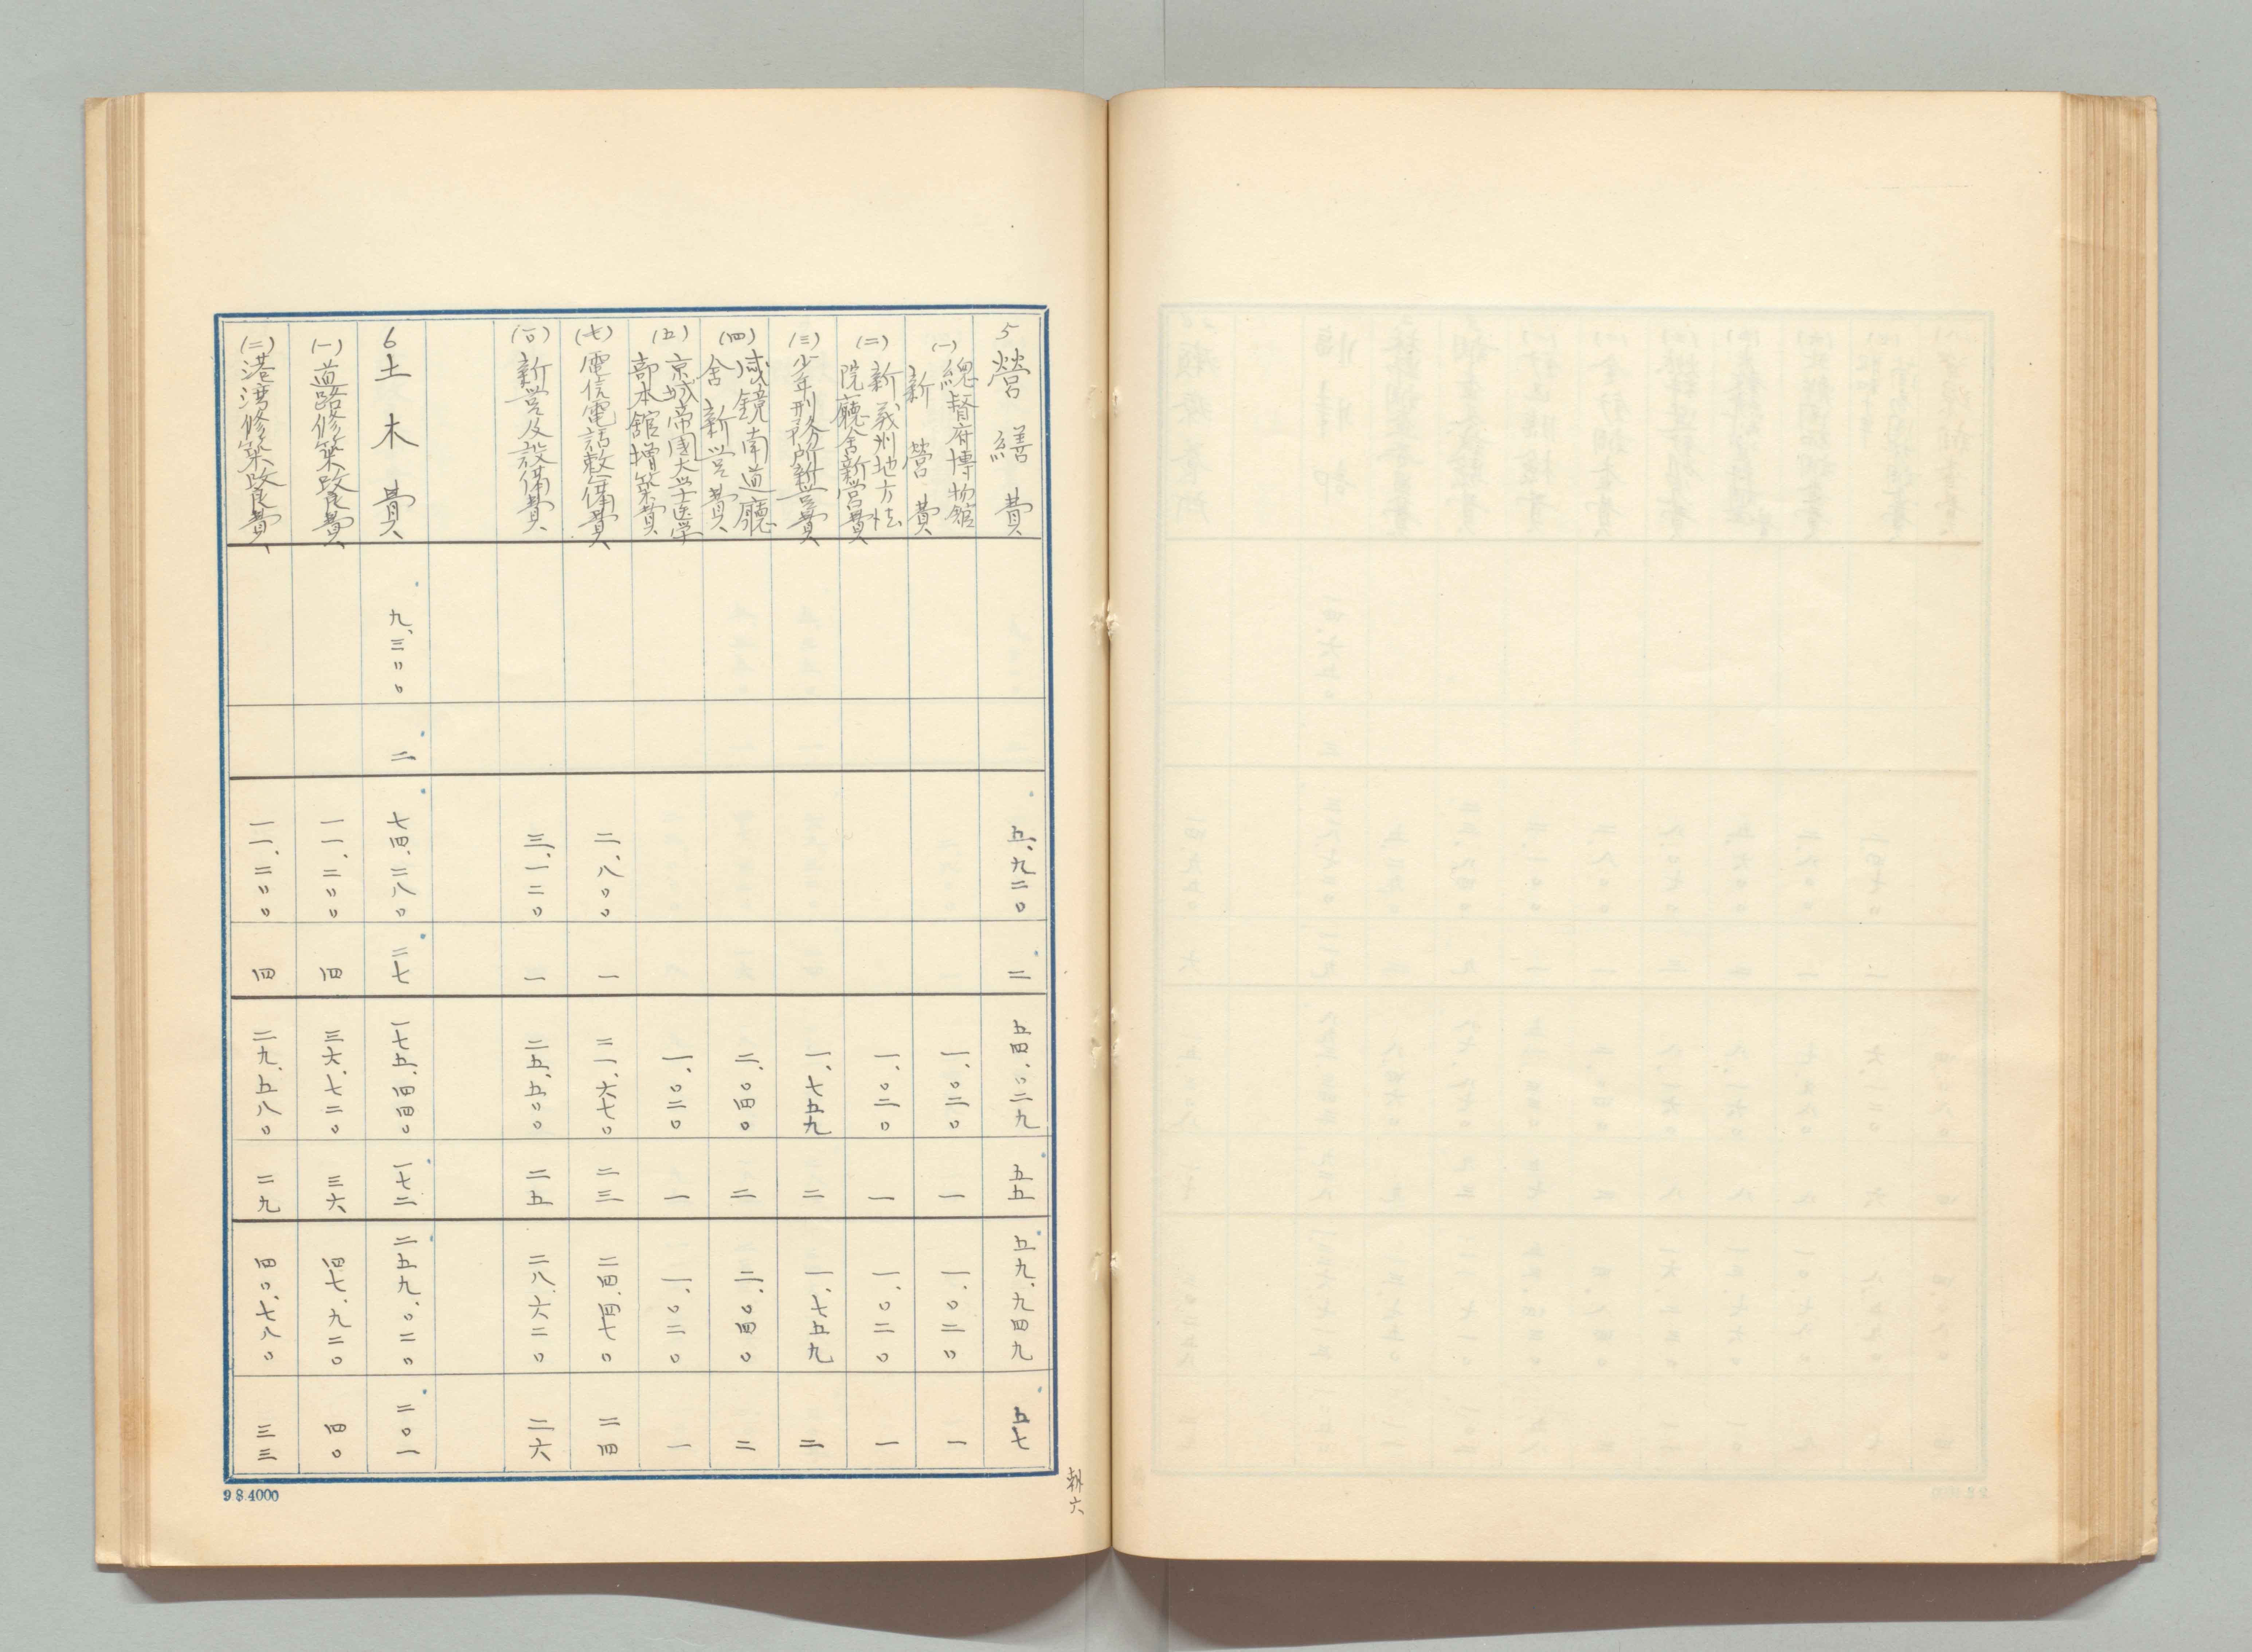 5 營繕費 五、九二〇 二 五四、〇二九 五五 五九、九四九 五七
(一) 總督府博物館
新營費 一、〇二〇 一 一、〇二〇 一
(二) 新義州地方法
院廳舍新営費 一、〇二〇 一 一、〇二〇 一
(三) 少年刑務所新営費 一、七五九 二 一、七五九 二
(四) 咸鏡南道廳
舍新営費 二、〇四〇 二 二、〇四〇 二
(五) 京城帝國大学医学
部本館増築費 一、〇二〇 一 一、〇二〇 一
(七) 電信電話整備費 二、八〇〇 一 二一、六七〇 二三 二四、四七〇 二四
(六) 新営及設備費 三、一二〇 一 二五、五〇〇 二五 二八、六二〇 二六
6 土木費 九、三〇〇 二 七四、二八〇 二七 一七五、四四〇 一七二 二五九、〇二〇 二〇一
(一) 道路修築改良費 一一、二〇〇 四 三六、七二〇 三六 四七、九二〇 四〇
(二) 港湾修築改良費 一一、二〇〇 四 二九、五八〇 二九 四〇、七八〇 三三
朝六
9.8.4000